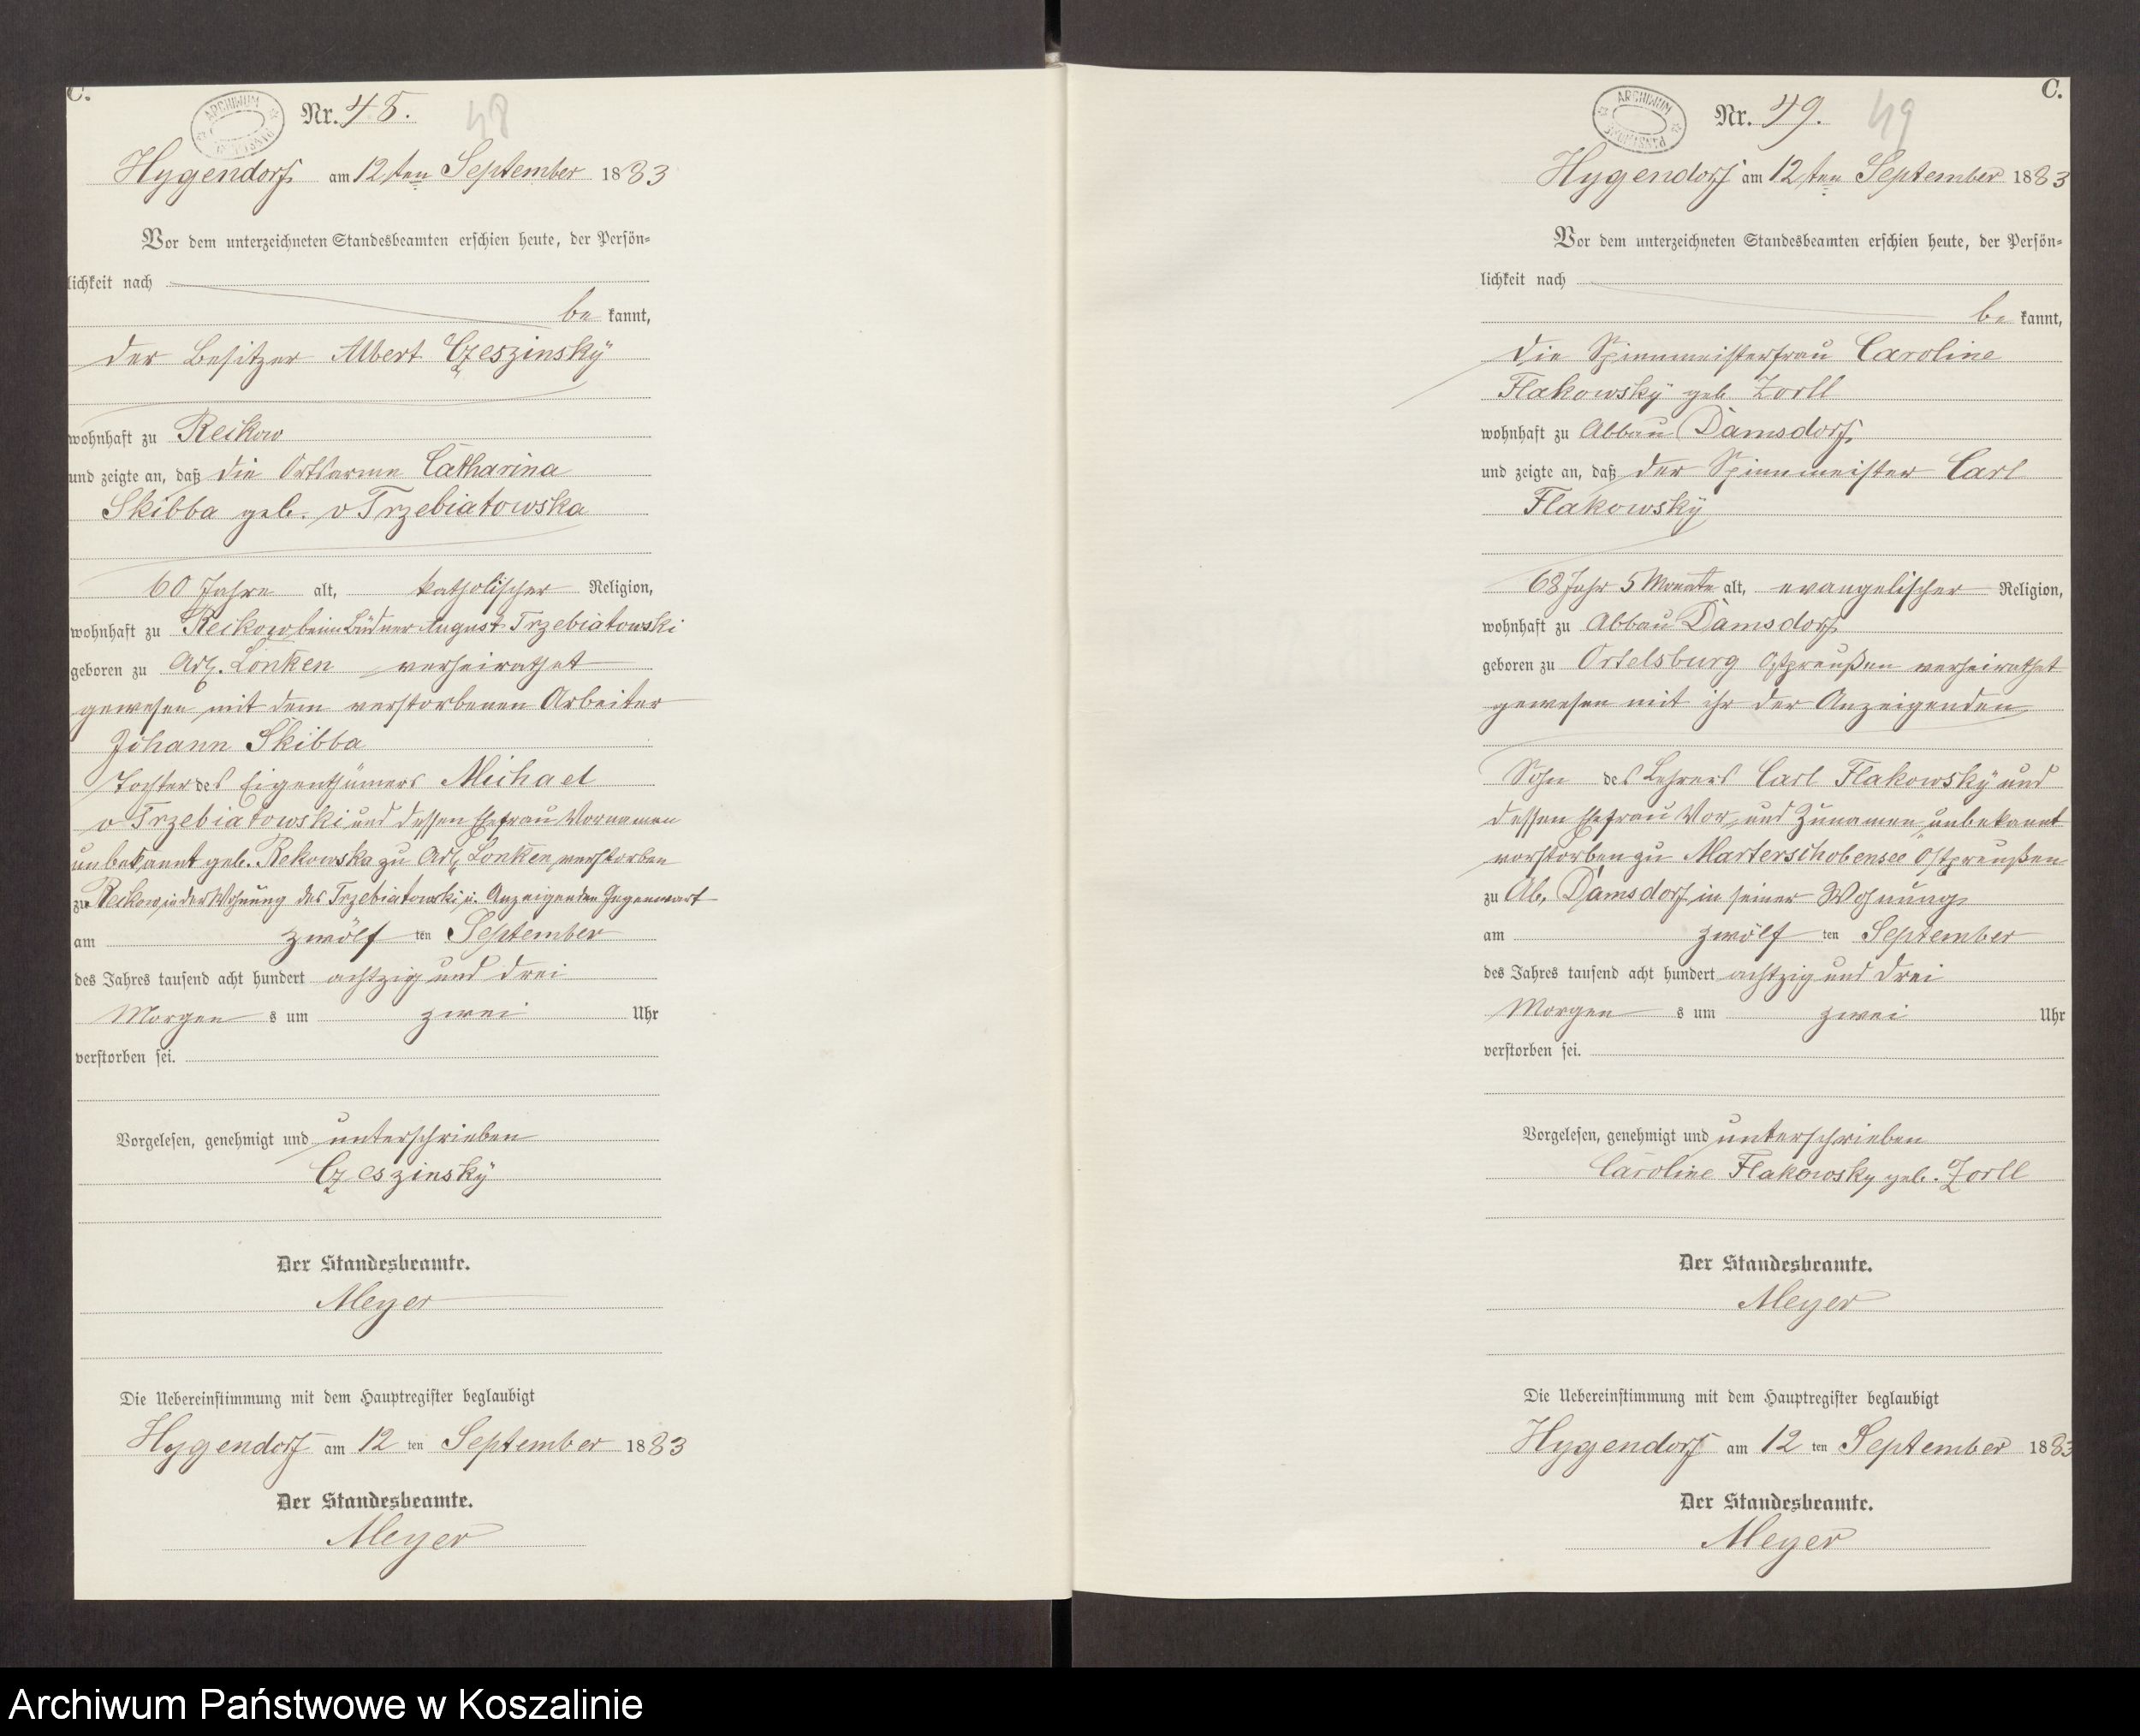 C.
ARCHIWUM PAŃSTWOWE
Nr. 48.
48
Hygendorf am 12ten September 1883
Vor dem unterzeichneten Standesbeamten erschien heute, der Persön=
lichkeit nach
be kannt,
der Besitzer Albert Czeszinsky
wohnhaft zu Reckow
und zeigte an, daß die Ortsarme Catharina
Skibba geb. v Trzebiatowska
60 Jahre alt, katholischer Religion,
wohnhaft zu Reckow beim Büdner August Trzebiatowski
geboren zu Adl. Lonken verheirathet
gewesen mit dem verstorbenen Arbeiter
Johann Skibba
Tochter des Eigenthümers Michael
v Trzebiatowski und dessen Ehefrau Vornamen
unbekannt geb. Rekowska zu Adl Lonken verstorben
zu Reckow in der Wohnung des Trzebiatowski i. Anzeigenden Gegenwart
am zwölf ten September
des Jahres tausend acht hundert achtzig und drei
Morgen s um zwei Uhr
verstorben sei.
Vorgelesen, genehmigt und unterschrieben
Czeszinsky
Der Standesbeamte.
Meyer
Die Uebereinstimmung mit dem Hauptregister beglaubigt
Hygendorf am 12 ten September 1883
Der Standesbeamte.
Meyer
C.
ARCHIWUM PAŃSTWOWE
Nr. 49.
49
Hygendorf am 12ten September 1883
Vor dem unterzeichneten Standesbeamten erschien heute, der Persön=
lichkeit nach
be kannt,
die Spinnmeisterfrau Caroline
Flakowsky geb Zorll
wohnhaft zu Abbau Damsdorf
und zeigte an, daß der Spinnmeister Carl
Flakowsky
68 Jahr 5 Monate alt, evangelischer Religion,
wohnhaft zu Abbau Damsdorf
geboren zu Ortelsburg Ostpreußen verheirathet
gewesen mit ihr der Anzeigenden
Sohn des Lehrers Carl Flakowsky und
dessen Ehefrau Vor= und Zunamen unbekannt
verstorben zu Marterschobensee Ostpreußen
zu Ab. Damsdorf in seiner Wohnung
am zwölf ten September
des Jahres tausend acht hundert achtzig und drei
Morgen s um zwei Uhr
verstorben sei.
Vorgelesen, genehmigt und unterschrieben
Caroline Flakowsky geb. Zorll
Der Standesbeamte.
Meyer
Die Uebereinstimmung mit dem Hauptregister beglaubigt
Hygendorf am 12 ten September 1883
Der Standesbeamte.
Meyer
Archiwum Państwowe w Koszalinie